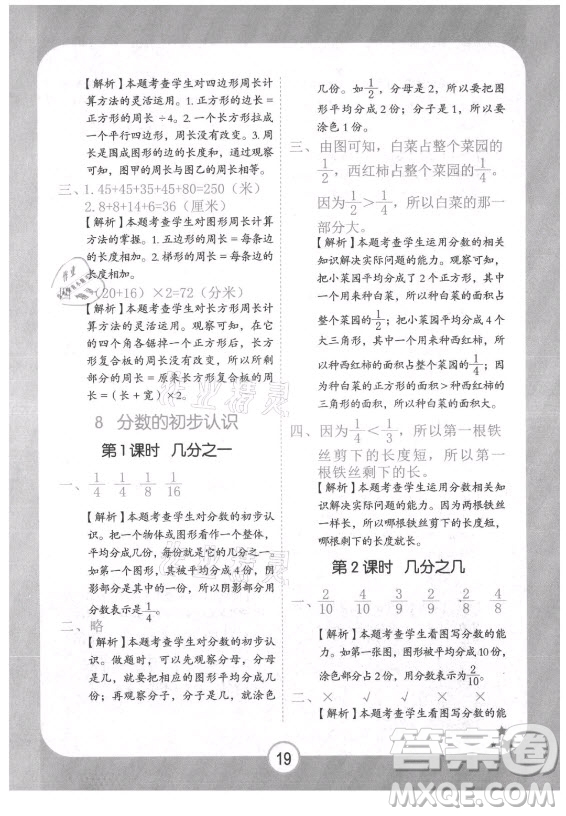 【解析】本题考查学生对四边形周长计
算方法的灵活运用。1. 正方形的边长=
正方形的周长 ÷4。2. 一个长方形拉成
一个平行四边形,周长没有改变。3. 周
长是围成图形的边的长度和,通过观察
可知,图甲的周长与图乙的周长相等。
三、1.45+45+35+45+80=250(米)
2.8+8+14+6=36(厘米)
【解析】本题考查学生对图形周长计算
方法的掌握。1. 五边形的周长=每条边
的长度相加。2. 梯形的周长=每条边的
长度相加。
(20+16)×2=72(分米)
【解析】本题考查学生对长方形周长计
算方法的灵活运用。观察可知,在它的
四个角各锯掉一个正方形后,长方
形复合板的周长没有改变,所以剩
部分的周长=原来长方形复合板的
周长=(长+宽)×2。
8 分数的初步认识
第1课时 几分之一
一、1/4 1/4 1/8 1/16
【解析】本题考查学生对分数的初步认
识。把一个物体或图形看作一个整体,
平均分成几份,每份就是它的几分之一。
第一个图形被平均分成4份,阴
影部分是其中的一份,所以阴影部
分用分数表示是1/4。
二、略
【解析】本题考查学生对分数的初步认
识。做题时,可以先观察分母,分母是
几,就要把相应的图形平均分成几
份;再观察分子,分子是几,就涂色
几份。如1/2,分母是2,所以要把图
形平均分成2份;分子是1,所以要
涂色1份。
三、由图可知,白菜占整个菜园的
1/2,西红柿占整个菜园的1/4。
因为1/2>1/4,所以白菜的那一
部分大。
【解析】本题考查学生运用分数的相关
知识解决实际问题的能力。观察可知,
把小菜园平均分成了2个正方形,其
中一个用来种白菜,所以种白菜的面积占
整个菜园的1/2。把小菜园平均分成4个
大三角形,其中一个用来种西红柿,所
以种西红柿的面积占整个菜园的1/4。
因为种白菜的正方形的面积大于种西红柿的
三角形的面积,所以种白菜的面积大。
四、因为1/4<1/3,所以第一根铁
丝剪下的长度短,第一根
铁丝剩下的长。
【解析】本题考查学生运用分数的相关知
识解决实际问题的能力。因为两根铁丝
一样长,所以哪根铁丝剪下的长度短,
哪根铁丝剩下的长度就长。
第2课时 几分之几
一、2/10 4/10 3/9 2/6 2/4 4/8
【解析】本题考查学生看图写分数的能
力。如第一张图,图形被平均分成10份,
涂色部分占2份,用分数表示是2/10。
二、× √ √ × ×
【解析】本题考查学生看图写分数的能
19
答案圈
MXQE.COM
作业精灵